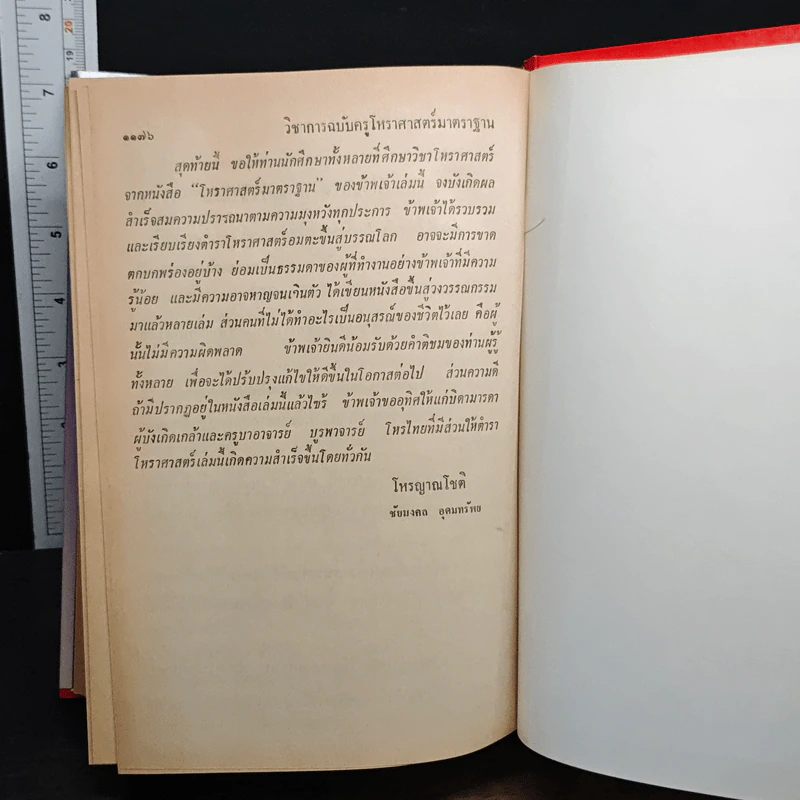 ๑๑๗๖ วิชาการฉบับครูโหราศาสตร์มาตราฐาน
สุดท้ายนี้ ขอให้ท่านนักศึกษาทั้งหลายที่ศึกษาวิชาโหราศาสตร์
จากหนังสือ “โหราศาสตร์มาตราฐาน” ของข้าพเจ้าเล่มนี้ จงบังเกิดผล
สำเร็จสมความปรารถนาตามความมุ่งหวังทุกประการ ข้าพเจ้าได้รวบรวม
และเรียบเรียงตำราโหราศาสตร์อมตะขึ้นสู่บรรณโลก อาจจะมีการขาด
ตกบกพร่องอยู่บ้าง ย่อมเป็นธรรมดาของผู้ที่ทำงานอย่างข้าพเจ้าที่มีความ
รู้น้อย และมีความอาจหาญจนเกินตัว ได้เขียนหนังสือขึ้นสู่วงวรรณกรรม
มาแล้วหลายเล่ม ส่วนคนที่ไม่ได้ทำอะไรเป็นอนุสรณ์ของชีวิตไว้เลย คือผู้
นั้นไม่มีความผิดพลาด ข้าพเจ้ายินดีน้อมรับด้วยคำติชมของท่านผู้รู้
ทั้งหลาย เพื่อจะได้ปรับปรุงแก้ไขให้ดีขึ้นในโอกาสต่อไป ส่วนความดี
ถ้ามีปรากฏอยู่ในหนังสือเล่มนี้แล้วไซร้ ข้าพเจ้าขออุทิศให้แก่บิดามารดา
ผู้บังเกิดเกล้าและครูบาอาจารย์ บูรพาจารย์ โหรไทยที่มีส่วนให้ตำรา
โหราศาสตร์เล่มนี้เกิดความสำเร็จขึ้นโดยทั่วกัน
โหรญาณโชติ
ชัยมงคล อุดมทรัพย์
8
7
6
5
4
3
2
20
19